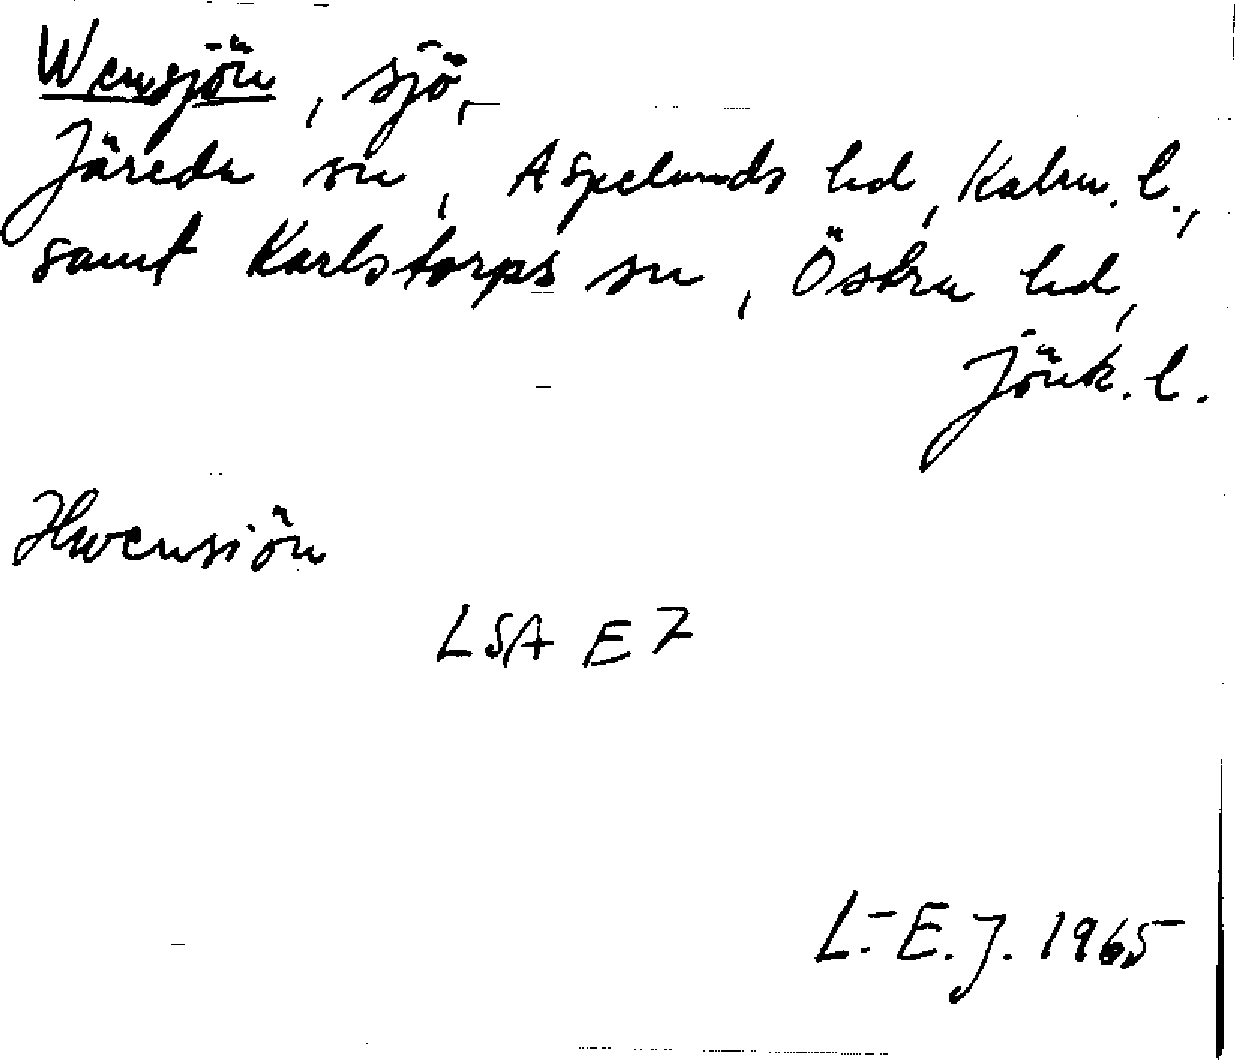 Wensjön, sjö,
Järeda sn, Aspelands hd, Kalm. l.,
samt Karlstorps sn, Östra hd,
Jönk. l.
Hwensiön
LSA E7
L.-E.J. 1965